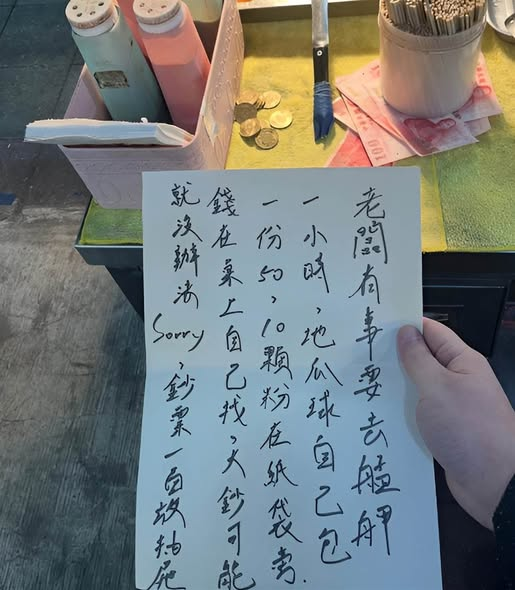 老闆有事要去艋舺
一小時,地瓜球自己包
一份50,10顆粉在紙袋旁.
錢在桌上自己找,大鈔可能
就沒辦法Sorry,鈔票一百放抽屜
100